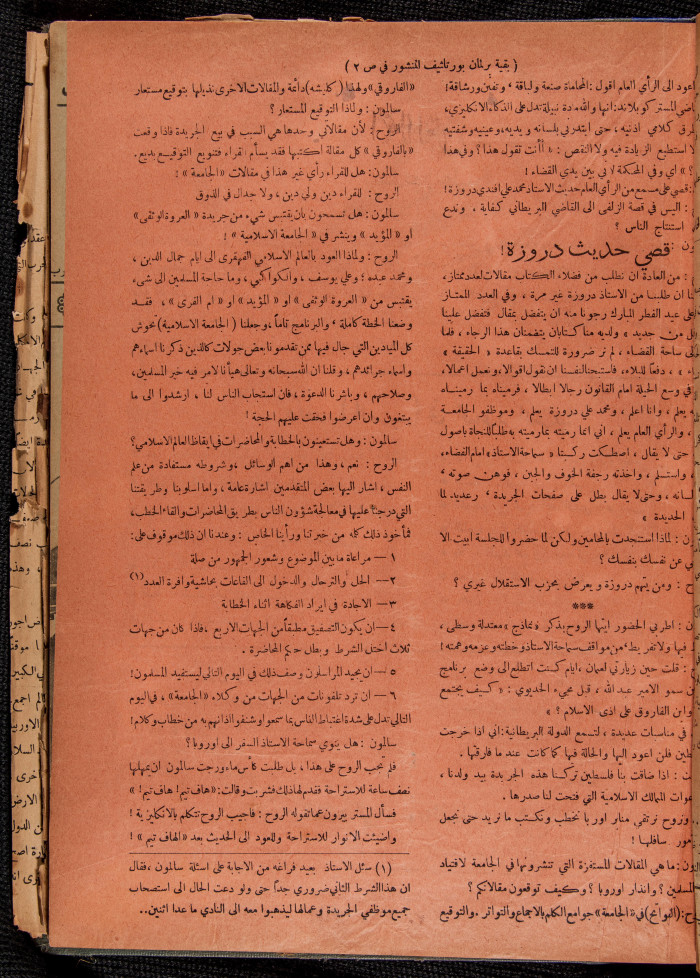 ( بقية برلمان بورتانيف المنشور في ص ٢ )
اعود الى الرأي العام اقول : المحاماة صنعة ولباقة ، وتفنن ورشاقة !
المستر كوبلاند : انها والله مادة نبيلة تدل على الذكاء الانكليزي ،
كلامي اذنيه ، حتى ابتدرني بلسانه ويديه ، وعينيه وشفتيه
لا استطيع الزيادة فيه ولا النقص : « أأنت تقول هذا ؟ وفي هذا
؟ » اي وفي المحكمة لا في بين يدي القضاء !
قصي على مسمع من الرأي العام حديث الاستاذ محمد علي افندي دروزة !
: اليس في قصة الزلفى الى القاضي البريطاني كفاية . وندع
استنتاج الناس ؟
قصي حديث دروزة !
: من العادة ان نطلب من فضلاء الكتاب مقالات لعدد ممتاز ،
ان طلبنا من الاستاذ دروزة غير مرة ، وفي العدد الممتاز
على عيد الفطر المبارك رجونا منه ان يتفضل بمقال فتفضل علينا
من جديد » ولديه منا كتابان يتضمنان هذا الرجاء ، فلما
الى ساحة القضاء ، لم نر ضرورة للتمسك بقاعدة « الحقيقة »
، دفعاً للبلاء ، فاستبحنا لنفسنا ان نقول اقوالا ، ونعمل اعمالا ،
في وسع الحيلة امام القانون رجالا ابطالا ، فرميناه بما رميناه
يعلم ، وانا اعلم ، ومحمد علي دروزة يعلم ، وموظفو الجامعة
، والرأي العام يعلم ، اني انما رميته بما رميته به طلباً للنجاة باصول
حتى لا يقال ، اصطكت ركبتا « سماحة الاستاذ » امام القضاء ،
، واستسلم ، واخذته رجفة الخوف والجبن ، فوهن صوته ،
لسانه ، وحتى لا يقال بطل على صفحات الجريدة ، رعديد لما
الحديدة »
: لماذا استنجدت بالمحامين ولكن لما حضروا للجلسة ابيت الا
عن نفسك بنفسك ؟
ح : ومن يتهم دروزة ويعرض بحزب الاستقلال غيري ؟
***
: اطربي الحضور ايتها الروح بذكر « نماذج » معتدلة وسطى ،
فيها ولا تفريط ، من مواقف سماحة الاستاذ وخطته وعزمه وهمته !
: قلت حين زيارتي لعمان ، ايام كنت اتطلع الى وضع برنامج
سمو الامير عبد الله ، قبل مجيء الخديوي : « كيف يجتمع
وابن الفاروق على اذى الاسلام ؟ »
في مناسبات عديدة ، لتسمع الدولة البريطانية : اني اذا خرجت
فلن اعود اليها والحالة فيها كما كانت عند ما فارقتها .
: اذا ضاقت بنا فلسطين تركنا هذه الجريدة بيد ولدنا ،
الممالك الاسلامية التي فتحت لنا صدرها .
ونروح نرتقي منابر اوربا نخطب ونكتب ما نريد حتى نجعل
سافلها !
: ما هي المقالات المستفزة التي تنشرونها في الجامعة لاقتياد
المسلمين ؟ وانذار اوروبا ؟ وكيف توقعون مقالاتكم ؟
ح : (البواتج) في « الجامعة » جوامع الكلم بالاجماع والتواتر ، والتوقيع
« الفاروقي » ولهذا ( كليشه ) دائمة والمقالات الاخرى نذيلها بتوقيع مستعار
سالمون : ولماذا التوقيع المستعار ؟
الروح : لأن مقالاتي وحدها هي السبب في بيع الجريدة فاذا وقعت
« بالفاروقي » كل مقالة اكتبها فقد يسأم القراء فتنويع التوقيع بديع .
سالمون : هل للقراء رأي غير هذا في مقالات « الجامعة » !
الروح : للقراء دين ولي دين ، ولا جدال في الذوق
سالمون : هل تسمحون بأن يقتبس شيء من جريدة « العروة الوثقى »
او « المؤيد » وينشر في « الجامعة الاسلامية » !
الروح : ولماذا العود بالعالم الاسلامي القهقرى الى ايام جمال الدين ،
ومحمد عبده ؛ وعلي يوسف ، والكواكبي ، وما حاجة المسلمين الى شيء
يقتبس من « العروة الوثقى » او « المؤيد » او « ام القرى » ، فقد
وضعنا الخطة كاملة ، والبرنامج تاماً ، وجعلنا ( الجامعة الاسلامية ) تخوض
كل الميادين التي جال فيها ممن تقدمونا بعض جولات كالذين ذكرنا اسماءهم
واسماء جرائدهم ، وقلنا ان الله سبحانه وتعالى هيأنا لامر فيه خير المسلمين ،
وصلاحهم ، وباشرنا الدعوة ، فان استجاب الناس لنا ، ارشدوا الى ما
يبتغون وان اعرضوا فحقت عليهم الحجة !
سالمون : وهل تستعينون بالخطابة والمحاضرات في ايقاظ العالم الاسلامي ؟
الروح : نعم ، وهذا من اهم الوسائل ، وشروطه مستفادة من علم
النفس ، اشار اليها بعض المتقدمين اشارة عامة ، واما اسلوبنا وطريقتنا
التي درجنا عليها في معالجة شؤون الناس بطريق المحاضرات والقاء الخطب ،
فمأخوذ ذلك كله من خبرتنا ورأينا الخاص : وعندنا ان ذلك موقوف على :
١ — مراعاة ما بين الموضوع وشعور الجمهور من صلة
٢ — الحل والترحال والدخول الى القاعات بحاشية وافرة العدد (١)
٣ — الاجادة في ايراد الفكاهة اثناء الخطابة
٤ — ان يكون التصفيق مطبقاً من الجهات الاربع ، فاذا كان من جهات
ثلاث اختل الشرط وبطل حكم المحاضرة .
٥ — ان يجيد المراسلون وصف ذلك في اليوم التالي ليستفيد المسلمون !
٦ — ان ترد تلفونات من الجهات من وكلاء « الجامعة » ، في اليوم
التالي تدل على شدة اغتباط الناس بما سمعوا وشنفوا اذانهم به من خطاب وكلام !
سالمون : هل ينوي سماحة الاستاذ السفر الى اوروبا ؟
فلم تجب الروح على هذا ، بل طلبت كأس ماء ورجت سالمون ان يمهلها
نصف ساعة للاستراحة فقدم لها ذلك فشربت وقالت : « هاف تيم ! هاف تيم ! »
فسأل المستر بيرون عما تقوله الروح : فاجيب الروح تتكلم بالانكليزية !
واضيئت الانوار للاستراحة وللعود الى الحديث بعد « الهاف تيم » !
(١) سئل الاستاذ بعيد فراغه من الاجابة على اسئلة سالمون ، فقال
ان هذا الشرط الثاني ضروري جداً حتى ولو دعت الحال الى استصحاب
جميع موظفي الجريدة وعمالها ليذهبوا معه الى النادي ما عدا اثنين ..